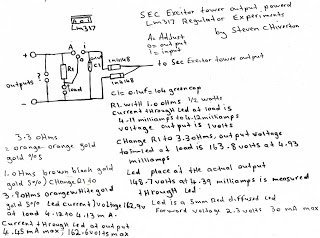 A o i
Lm317
SEC Excitor tower output powered
Lm317 Regulator Experiments
by Steven Chiverton
A = Adjust
O = output
i = input
A
O
i
1n4148
1n4148
to Sec Excitor tower output
+
outputs
?
R1
load
C1
-
C1 = 0.1uf = 104 green cap
R1 with 1.0 ohms 1/2 watts
current through Led at load is
4.11 milliamps to 4.12 milliamps
voltage output is 1 volts
Change R1 to 3.3 ohms, output voltage
to same Led at load is 163.8 volts at 4.93
milliamps
3.3 ohms
= orange orange gold
gold 5%
1.0 hms brown black gold
gold 5%) Change R1 to
3.9 ohms orange white gold
gold 5% Led current) voltage 162.9v
at load 4.12 to 4.13 m A.
Current through Led at output
4.45 mA max) 162.6 volts max
Led place at the actual output
148.7 volts at 4.39 milliamps is measured
through Led
Led is a 5mm Red diffused Led
Forward voltage 2.3 volts 30 mA max